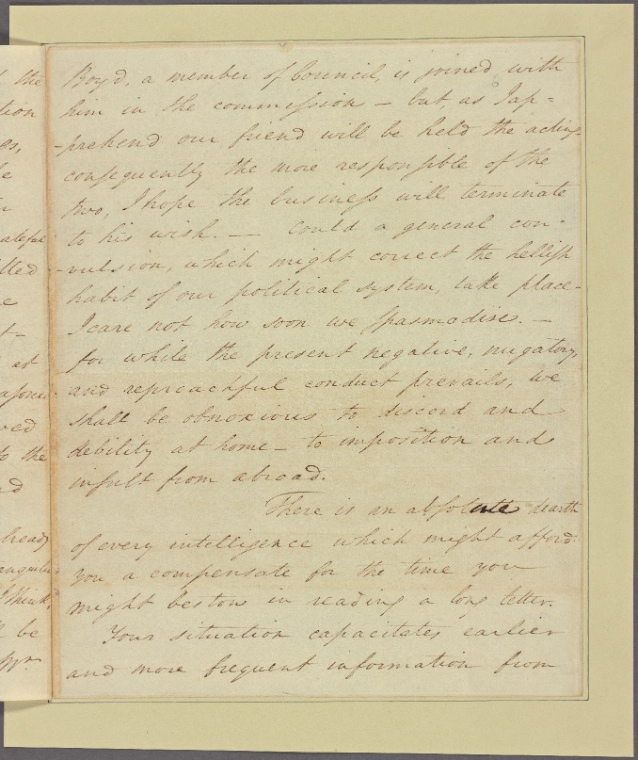 Boyd, a member of Council, is joined with
him in the commission — but, as I ap=
-prehend our friend will be held the acting
consequently the more responsible of the
two, I hope the business will terminate
to his wish. — Could a general con-
-vulsion, which might correct the hellish
habit of our political system, take place-
I care not how soon we spasmodise. —
for while the present negative, nugatory,
and reproachful conduct prevails, we
shall be obnoxious to discord and
debility at home — to imposition and
insult from abroad.
There is an absolute dearth
of every intelligence which might afford
you a compensate for the time you
might bestow in reading a long letter.
Your situation capacitates earlier
and more frequent information from
the
tion
ateful
at
to the
think,
be